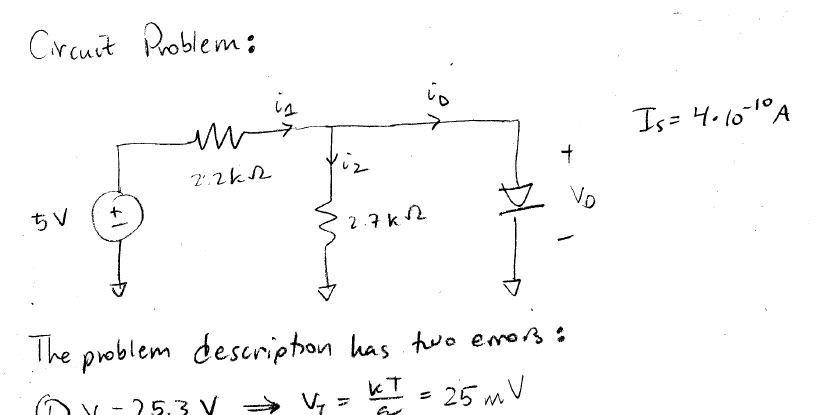 Circuit Problem:
i1
iD
Is = 4·10^-10 A
2.2kΩ
i2
+
VD
-
5V
+
-
2.7kΩ
The problem description has two errors:
① V = 25.3 V ⇒ VT = kT/q = 25 mV